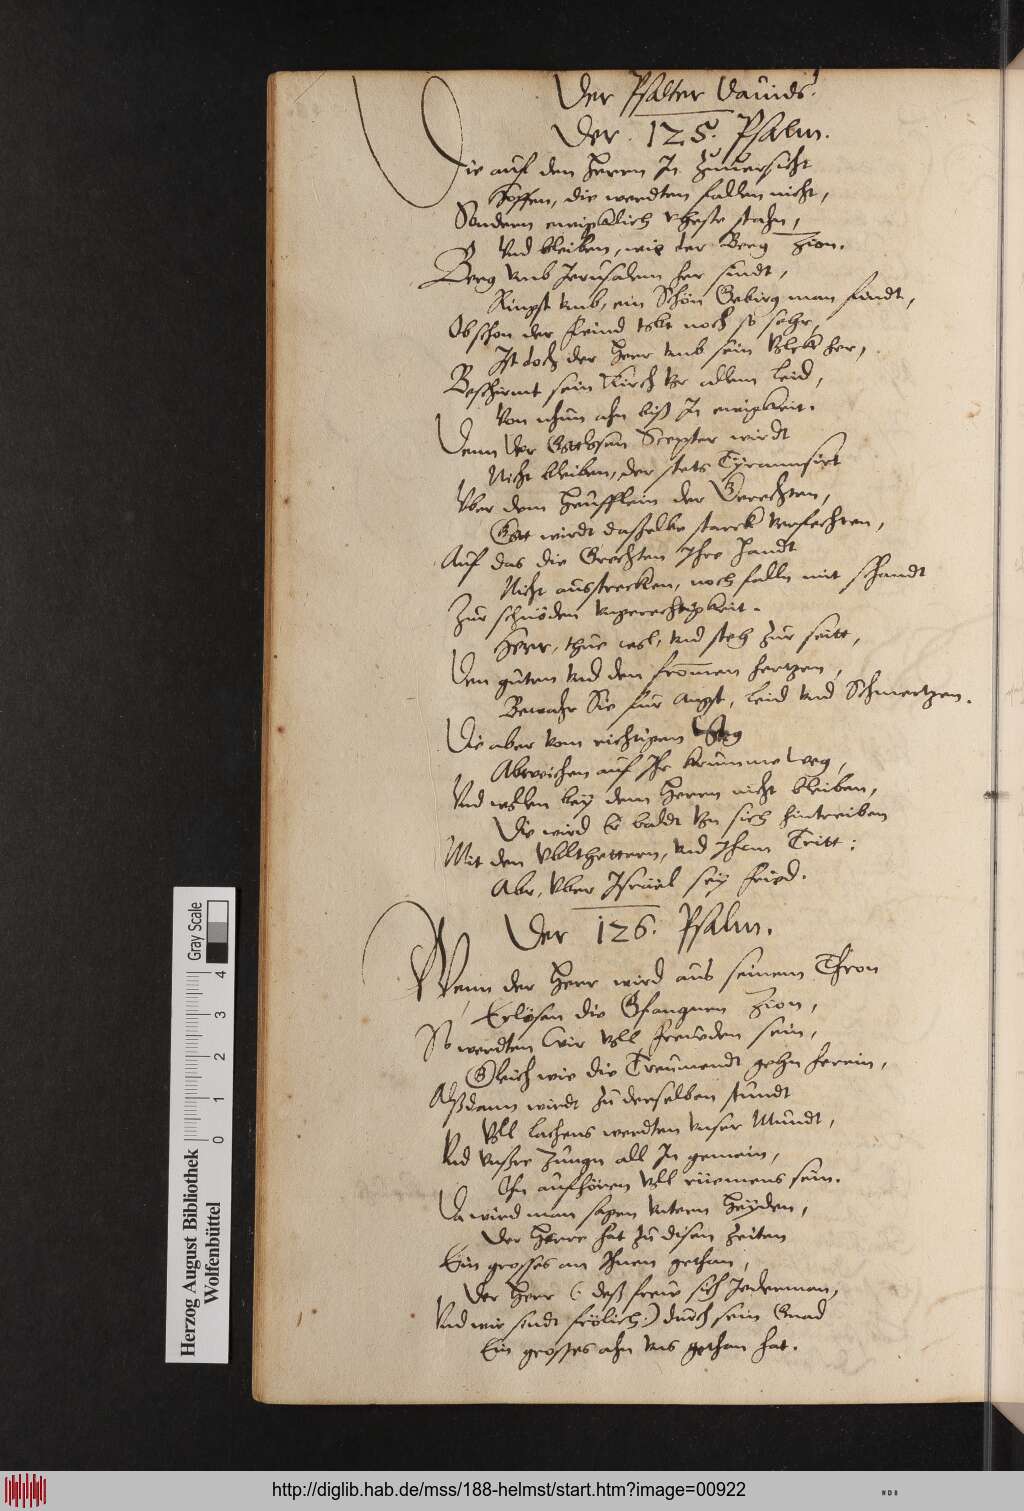 Der Psalter Dauids.
Der . 125. Psalm.
Die auf den Herrn In Zuuersicht
Hoffen, die werdten fallen nicht,
Sondern ewigklich veste stahn,
Vnd bleiben, wie der Berg Zion.
Berg vmb Jerusalem her sindt,
Ringst vmb, ein Schön Gebirg man findt,
Obschon der feind tobt noch so sehr,
Ist doch der Herr vmb sein Volck her,
Beschirmt sein Kirch vor allem leid,
Von nhun ahn biß In ewigkeit.
Denn der Gottlosen Scepter wirdt
Nicht bleiben, der stets Tÿrannisirt
Vber dem heufflein der Gerechten,
Gott wirdt dasselbe starck verfechten,
Auf das die Grechten Ihre Handt
Nicht ausstrecken, noch falln mit schandt
Zur schnöden vngerechtigkeit.
Herr, thue wol, vnd steh Zur seitt,
Den guten vnd den fromen hertzen,
Bewahr Sie fur Angst, leid vnd Schmertzen.
Die aber vom richtigem Steg
Abweichen auf Ihr krumme weg,
Vnd wollen beÿ dem Herrn nicht bleiben,
Die wird Er baldt von sich hintreiben
Mit den Vblthettern, vnd Ihrm Tritt:
Abr, vber Israel seÿ fried.
Der 126. Psalm.
Wenn der Herr wird aus seinem Thron
Erlösen die Gfangnen Zion,
So werdten wir voll freuden sein,
Gleich wie die Treumendt gehn herein,
Alßdann wirdt Zu derselben stundt
Voll lachens werdten vnser Mundt,
Vnd vnsre Zungn all In gemein,
Ohn aufhören voll rüemens sein.
Da wird man sagen vntern Heÿden,
Der Herre hat Zu disen Zeiten
Ein grosses an Ihnen gethan,
Der Herr (: deß freue sich Jederman,
Vnd wir sindt frölich:) durch sein Gnad
Ein grosses ahn vns gethan hat.
Herzog August Bibliothek
Wolfenbüttel
0 1 2 3 4
Gray Scale
http://diglib.hab.de/mss/188-helmst/start.htm?image=00922